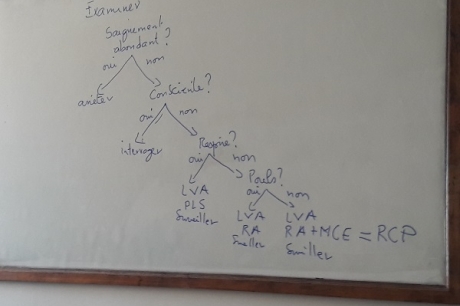 Examiner
Saignement
abondant?
oui non
arrêter
Consciente?
oui non
interroger
Respire?
oui non
LVA
PLS
Surveiller
Pouls?
oui non
LVA LVA
RA RA+MCE = RCP
Surveiller Surveiller